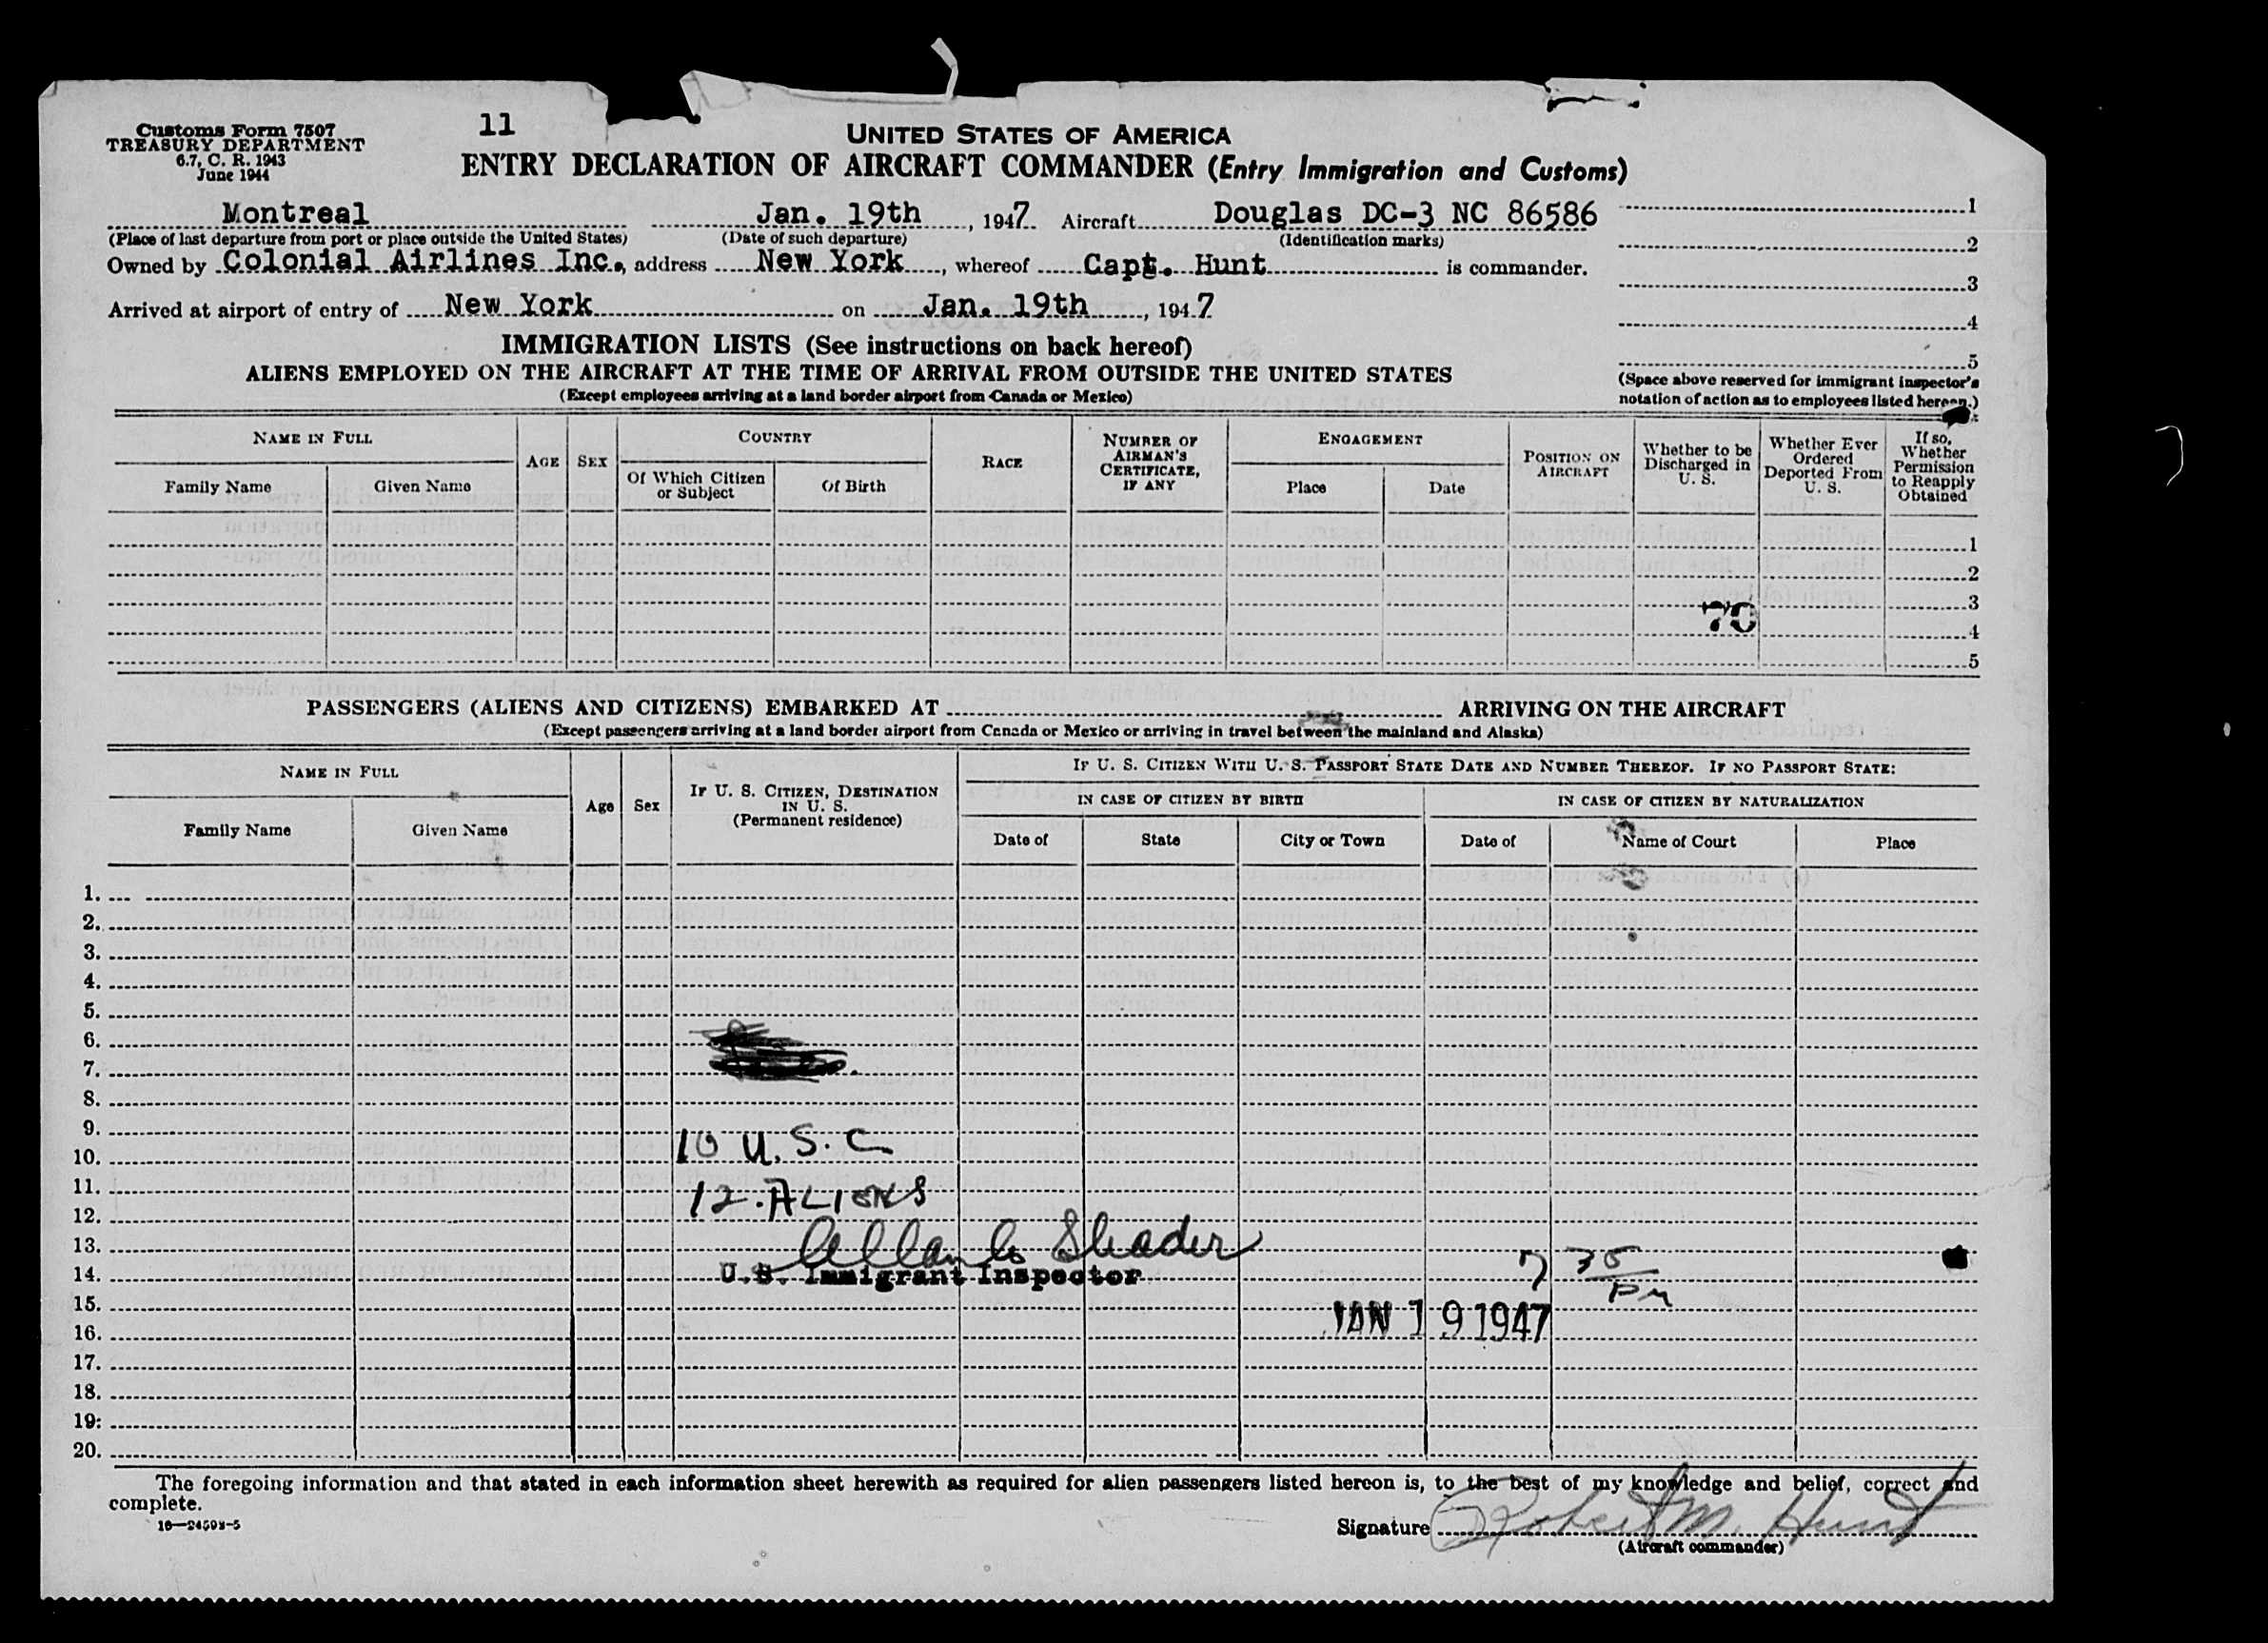 Customs Form 7507
TREASURY DEPARTMENT
6.7, C. R. 1943
June 1944
11
UNITED STATES OF AMERICA
ENTRY DECLARATION OF AIRCRAFT COMMANDER (Entry Immigration and Customs)
Montreal Jan. 19th, 1947 Aircraft Douglas DC-3 NC 86586
(Place of last departure from port or place outside the United States) (Date of such departure) (Identification marks)
Owned by Colonial Airlines Inc., address New York, whereof Capt. Hunt is commander.
Arrived at airport of entry of New York on Jan. 19th, 1947
1
2
3
4
5
(Space above reserved for immigrant inspector's
notation of action as to employees listed hereon.)
IMMIGRATION LISTS (See instructions on back hereof)
ALIENS EMPLOYED ON THE AIRCRAFT AT THE TIME OF ARRIVAL FROM OUTSIDE THE UNITED STATES
(Except employees arriving at a land border airport from Canada or Mexico)
NAME IN FULL
Family Name Given Name
AGE
SEX
COUNTRY
Of Which Citizen or Subject
Of Birth
RACE
NUMBER OF AIRMAN'S CERTIFICATE, IF ANY
ENGAGEMENT
Place Date
POSITION ON AIRCRAFT
Whether to be Discharged in U. S.
Whether Ever Ordered Deported From U. S.
If so, Whether Permission to Reapply Obtained
1
2
3
70
4
5
PASSENGERS (ALIENS AND CITIZENS) EMBARKED AT ARRIVING ON THE AIRCRAFT
(Except passengers arriving at a land border airport from Canada or Mexico or arriving in travel between the mainland and Alaska)
NAME IN FULL
Family Name Given Name
Age
Sex
IF U. S. CITIZEN, DESTINATION IN U. S.
(Permanent residence)
IF U. S. CITIZEN WITH U. S. PASSPORT STATE DATE AND NUMBER THEREOF. IF NO PASSPORT STATE:
IN CASE OF CITIZEN BY BIRTH
IN CASE OF CITIZEN BY NATURALIZATION
Date of State City or Town Date of Name of Court Place
1.
2.
3.
4.
5.
6.
7.
8.
9.
10. 10 U. S. C
11.
12. 12. ALIENS
13. Allan G Shader
14. U.S. Immigrant Inspector 7 35 PM
15.
16. JAN 19 1947
17.
18.
19.
20.
The foregoing information and that stated in each information sheet herewith as required for alien passengers listed hereon is, to the best of my knowledge and belief, correct and
complete.
Signature Robert M. Hunt
(Aircraft commander)